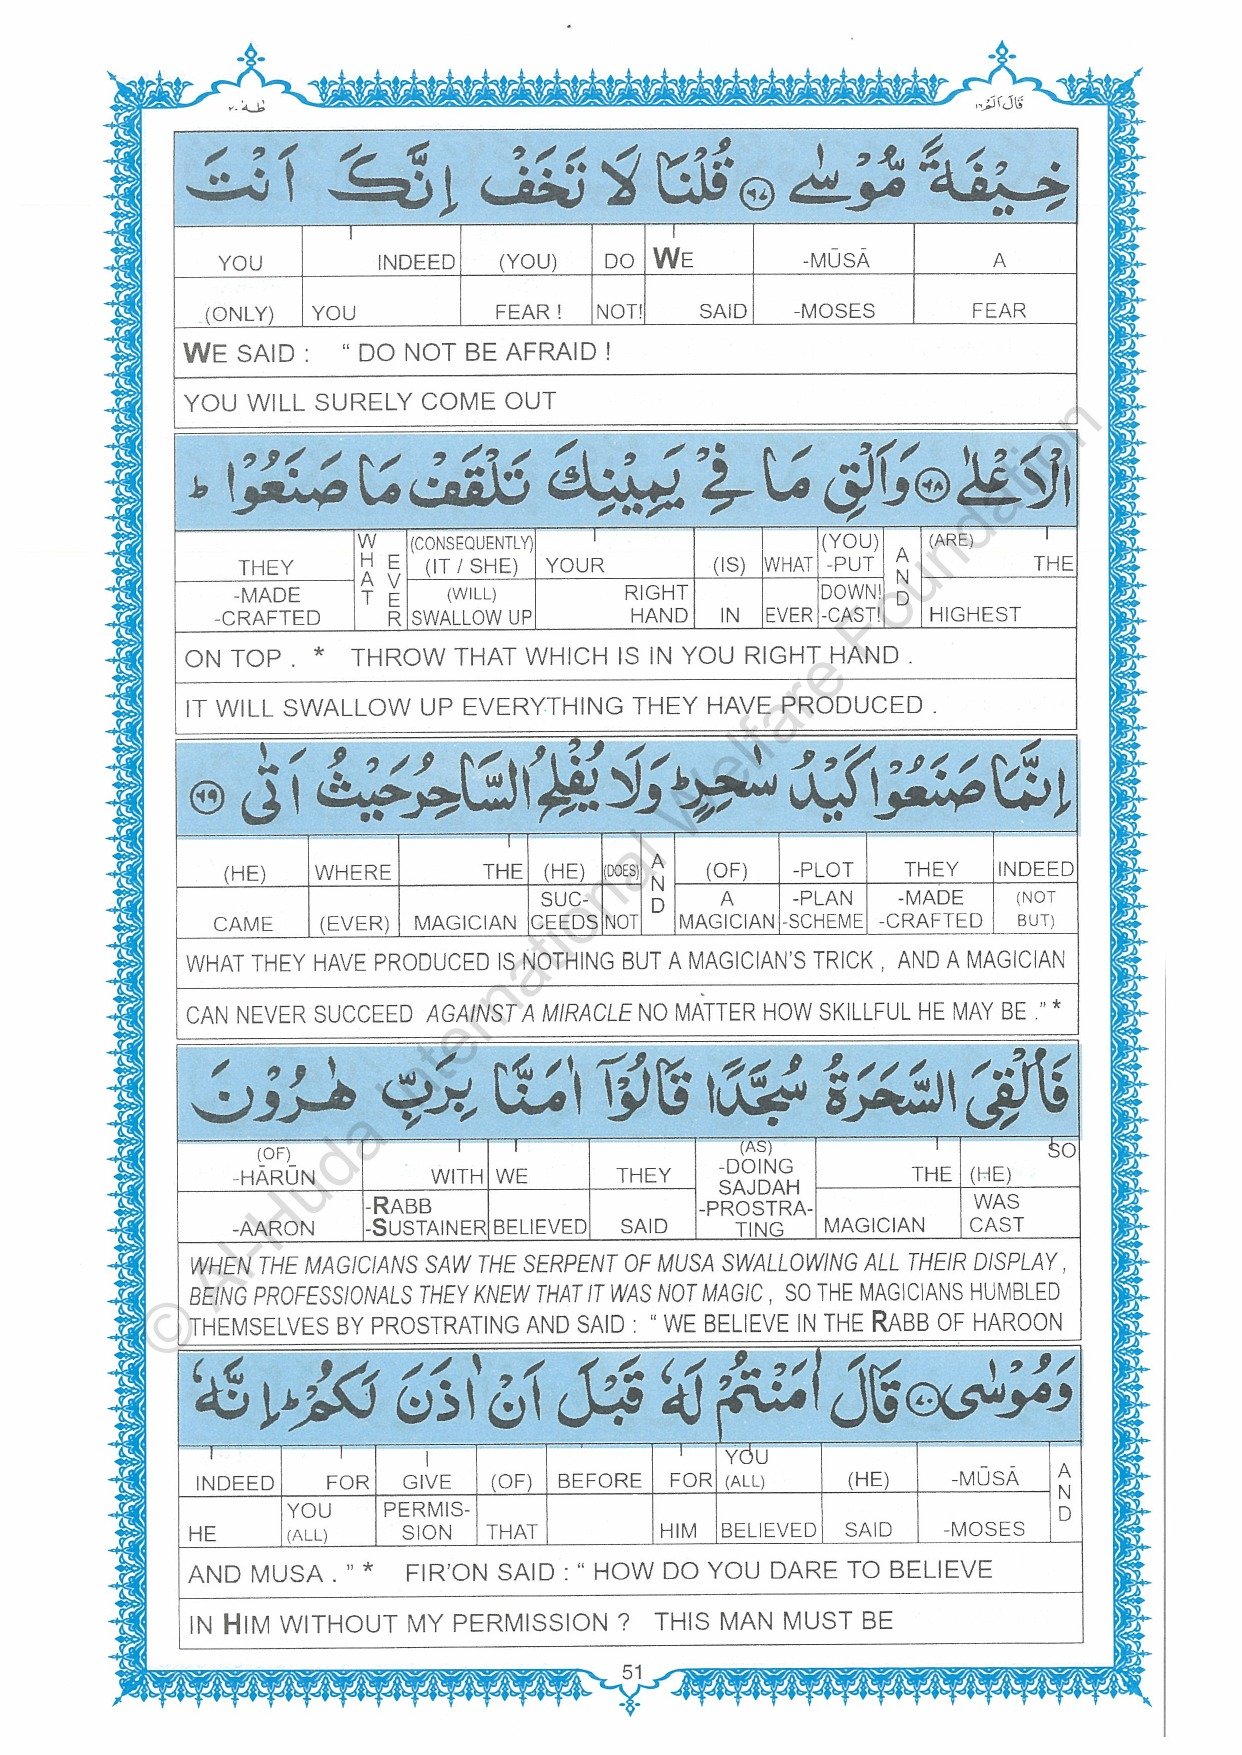 طٰهٰ ٢٠
قَالَ اَلَمْ ١٦
خِيْفَةً مُّوْسٰى ﴿٦٧﴾ قُلْنَا لَا تَخَفْ اِنَّكَ اَنْتَ
YOU INDEED (YOU) DO WE -MŪSĀ A
(ONLY) YOU FEAR ! NOT! SAID -MOSES FEAR
WE SAID : “ DO NOT BE AFRAID !
YOU WILL SURELY COME OUT
الْاَعْلٰى ﴿٦٨﴾ وَاَلْقِ مَا فِيْ يَمِيْنِكَ تَلْقَفْ مَا صَنَعُوْا ؕ
THEY WHAT EVER (CONSEQUENTLY) (IT / SHE) YOUR (IS) WHAT (YOU) -PUT AND (ARE) THE
-MADE -CRAFTED (WILL) SWALLOW UP RIGHT HAND IN EVER DOWN! -CAST! HIGHEST
ON TOP . * THROW THAT WHICH IS IN YOU RIGHT HAND .
IT WILL SWALLOW UP EVERYTHING THEY HAVE PRODUCED .
اِنَّمَا صَنَعُوْا كَيْدُ سٰحِرٍ ؕ وَلَا يُفْلِحُ السَّاحِرُ حَيْثُ اَتٰى ﴿٦٩﴾
(HE) WHERE THE (HE) (DOES) AND (OF) -PLOT THEY INDEED
CAME (EVER) MAGICIAN SUC- CEEDS NOT A MAGICIAN -PLAN -SCHEME -MADE -CRAFTED (NOT BUT)
WHAT THEY HAVE PRODUCED IS NOTHING BUT A MAGICIAN’S TRICK , AND A MAGICIAN
CAN NEVER SUCCEED AGAINST A MIRACLE NO MATTER HOW SKILLFUL HE MAY BE .” *
فَاُلْقِيَ السَّحَرَةُ سُجَّدًا قَالُوْٓا اٰمَنَّا بِرَبِّ هٰرُوْنَ
(OF) -HĀRŪN WITH WE THEY (AS) -DOING SAJDAH -PROSTRA- TING THE (HE) SO
-AARON -RABB -SUSTAINER BELIEVED SAID MAGICIAN WAS CAST
WHEN THE MAGICIANS SAW THE SERPENT OF MUSA SWALLOWING ALL THEIR DISPLAY ,
BEING PROFESSIONALS THEY KNEW THAT IT WAS NOT MAGIC , SO THE MAGICIANS HUMBLED
THEMSELVES BY PROSTRATING AND SAID : “ WE BELIEVE IN THE RABB OF HAROON
وَمُوْسٰى ﴿٧٠﴾ قَالَ اٰمَنْتُمْ لَهٗ قَبْلَ اَنْ اٰذَنَ لَكُمْ ؕ اِنَّهٗ
INDEED FOR GIVE (OF) BEFORE FOR YOU (ALL) (HE) -MŪSĀ AND
HE YOU (ALL) PERMIS- SION THAT HIM BELIEVED SAID -MOSES
AND MUSA . ” * FIR’ON SAID : “ HOW DO YOU DARE TO BELIEVE
IN HIM WITHOUT MY PERMISSION ? THIS MAN MUST BE
51
© Al-Huda International Welfare Foundation